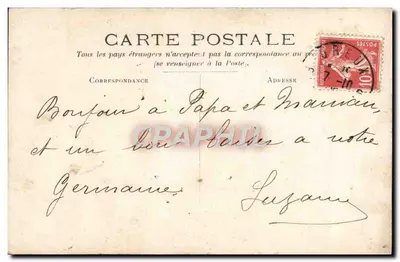 CARTE POSTALE
Tous les pays étrangers n'acceptent pas la correspondance au
(se renseigner à la Poste).
CORRESPONDANCE
ADRESSE
POSTES
10
7-10
CPAPHIL
Bonjour à Papa et Maman,
et un bon baiser a notre
Germaine
Suzanne